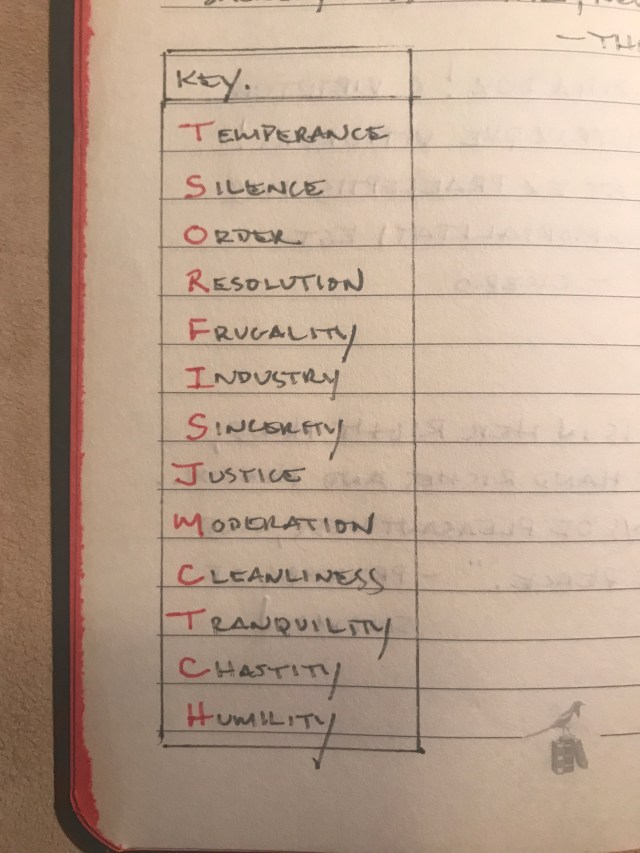 — TH
KEY.
TEMPERANCE
SILENCE
ORDER
RESOLUTION
FRUGALITY
INDUSTRY
SINCERITY
JUSTICE
MODERATION
CLEANLINESS
TRANQUILITY
CHASTITY
HUMILITY